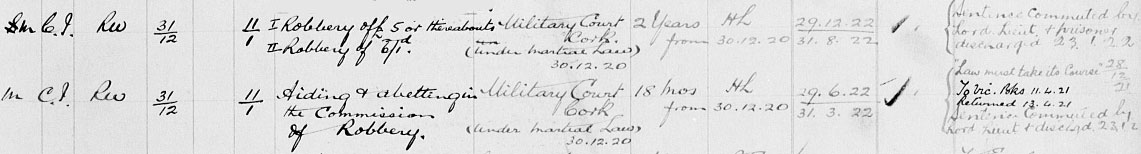 Sm C.I. Rev 31/12 11/1 I Robbery of £5 or thereabouts Military Court 2 Years Hl 29.12.22 1. Sentence commuted by
II Robbery of 6/1d. Cork. from 30.12.20 31.8.22 Lord Lieut, & prisoner
(under Martial Law) discharged 23.1.22
30.12.20
m C.I. Rev 31/12 11/1 Aiding & abetting in Military Court 18 mos Hl 29.6.22 1. "Law must take its Course" 28/12/21
the Commission Cork from 30.12.20 31.3.22 To Vic. Bks 11.4.21
of Robbery. (Under Martial Law) Returned 13.4.21
30.12.20 Sentence Commuted by
Lord Lieut & dischgd 23.1.2